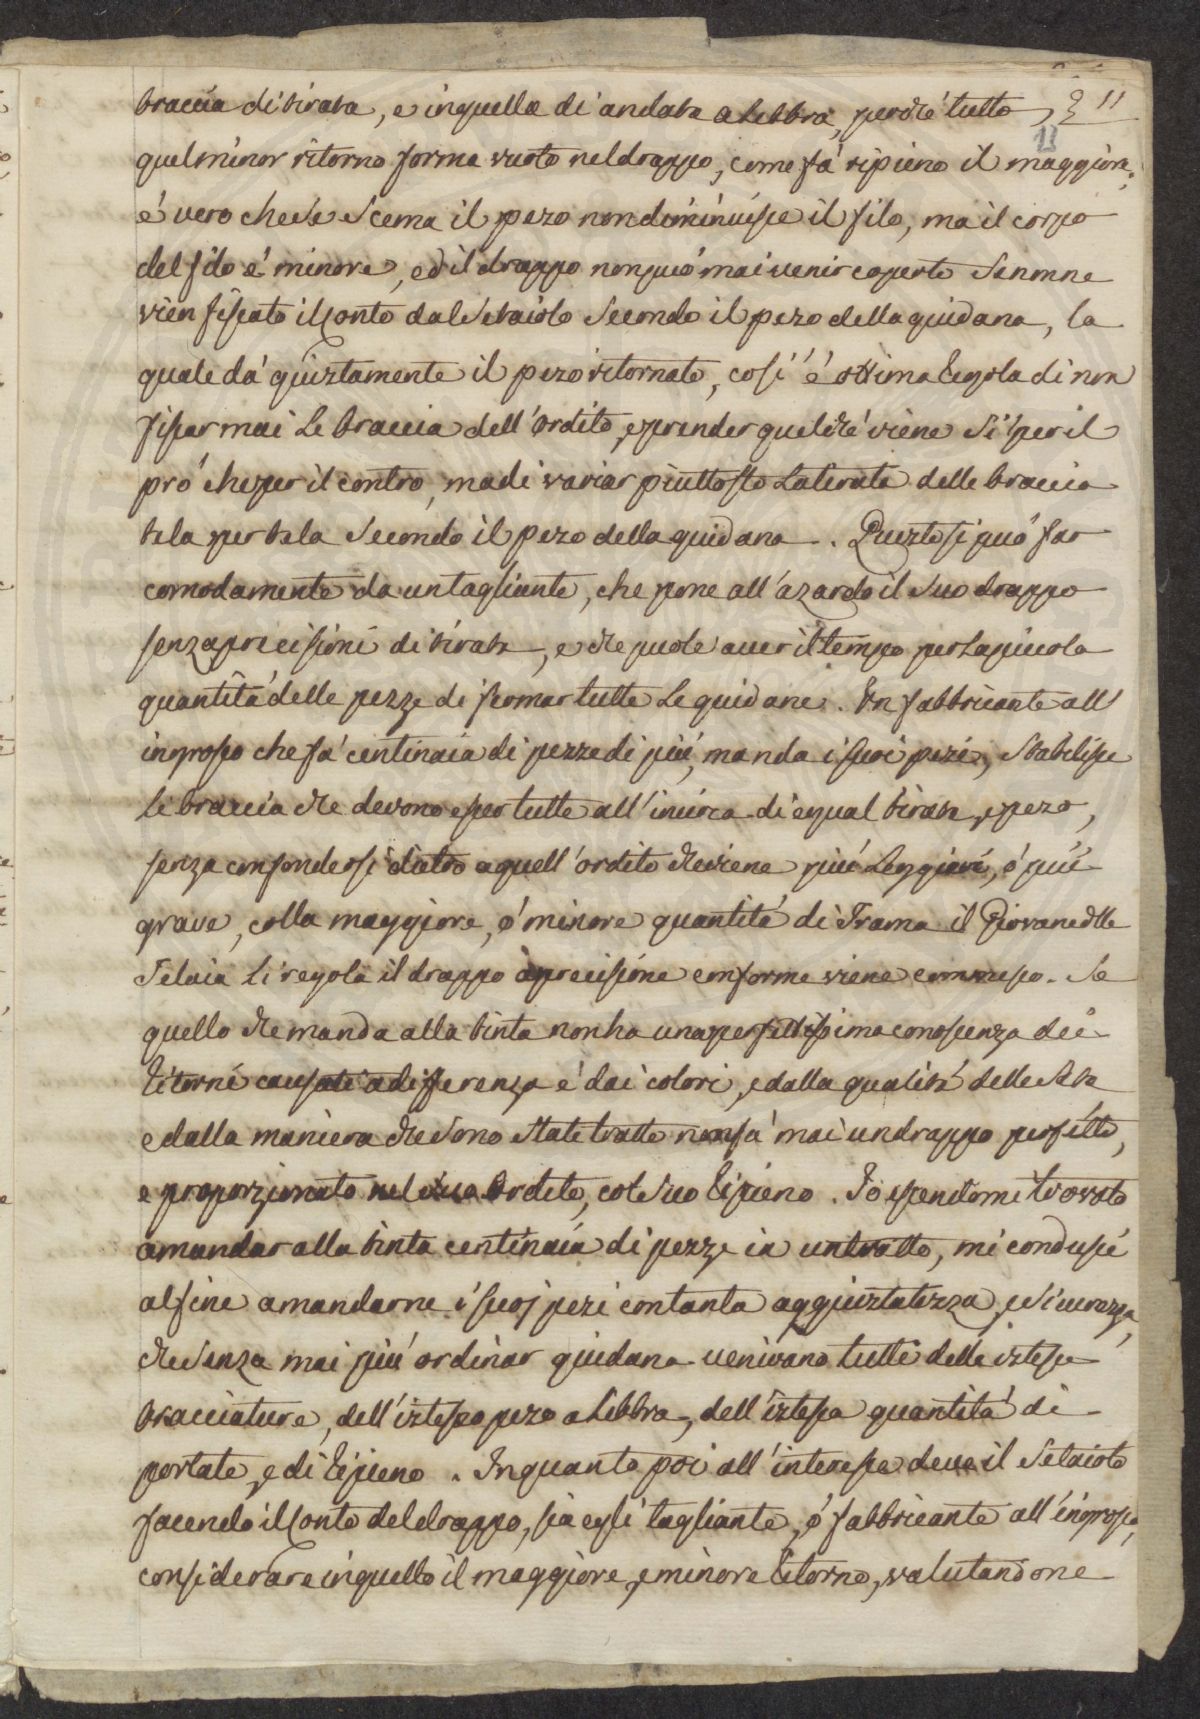 braccia di tirata, e in quella di andata a Libbra, perchè tutto 11
quel minor ritorno forma vuoto nel drappo, come fà ripieno il maggiore; 13
é vero che se scema il pezo non diminuisce il filo, ma il corpo
del filo é minore, ed il drappo non può mai venir coperto se non ne
vien fissato il Conto dal Setaiolo secondo il pezo della guidana, la
quale dà giuztamente il pezo ritornato, cosí é ottima Regola di non
fissar mai le braccia dell'ordito, e prender quel che viene sí per il
pró che per il contro, ma di variar piuttosto la tirata delle braccia
tela per tela secondo il pezo della guidana. Quezto si puó far
comodamente da un tagliante, che pone all'azardo il suo drappo
senza precisioni di tirata, e che puole aver il tempo per la piccola
quantità delle pezze di formar tutte le guidane. Un fabbricante all'
ingrosso che fà centinaia di pezze di più, manda i suoi pezi, stabilisce
le braccia che devono esser tutte all'incirca di egual tirata, e pezo,
senza confondersi dietro a quell'ordito che viene più leggieri, ó più
grave, colla maggiore, ó minore quantità di Trama il Giovane delle
Telaia li regola il drappo à precisione conforme viene commesso. Se
quello che manda alla tinta non ha una perfettissima conoscenza dei
Ritorni causati a differenza é dai colori, e dalla qualità delle Sete
e dalla maniera che sono state tratte non fà mai un drappo perfetto,
e proporzionato nel suo Ordito, col suo Ripieno. Io essendomi trovato
a mandar alla tinta centinaia di pezze in un tratto, mi condussi
al fine a mandarne i suoj pezi con tanta aggiuztatezza, e sicurezza,
che senza mai più ordinar guidana venivano tutte delle iztesse
bracciature, dell'iztesso pezo a Libbra, dell'iztessa quantità di
portate, e di Ripieno. In quanto poi all'interesse deve il Setaiolo
facendo il Conto del drappo, sia egli tagliante, ó fabbricante all'ingrosso,
considerare in quello il maggiore, e minore Ritorno, valutandone